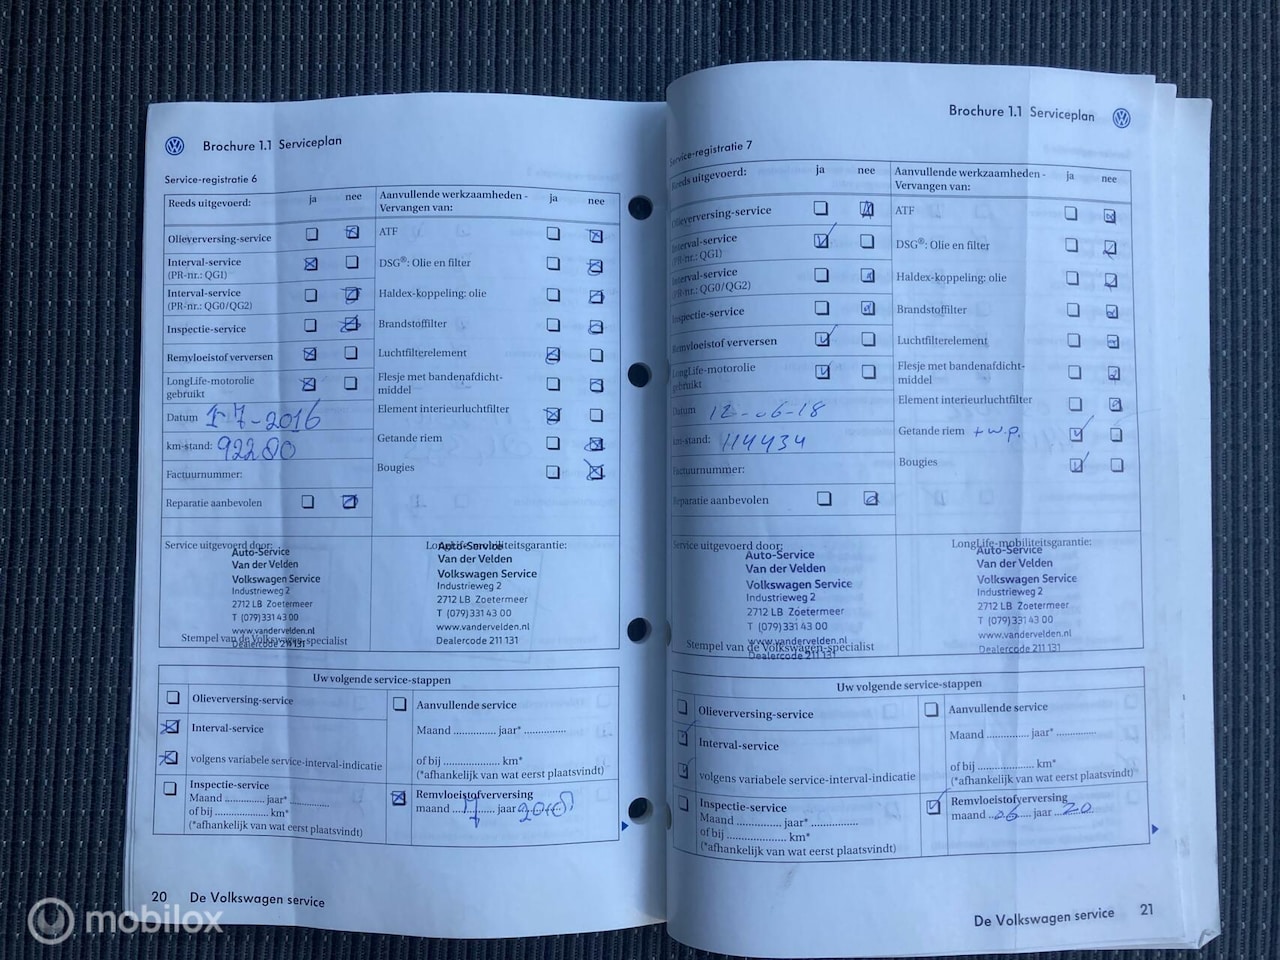 Brochure 1.1 Serviceplan
Service-registratie 6
Reeds uitgevoerd: ja nee
Olieverversing-service
Interval-service
(PR-nr.: QG1)
Interval-service
(PR-nr.: QG0/QG2)
Inspectie-service
Remvloeistof verversen
LongLife-motorolie
gebruikt
Datum 1-7-2016
km-stand: 92280
Factuurnummer:
Reparatie aanbevolen
Aanvullende werkzaamheden -
Vervangen van: ja nee
ATF
DSG®: Olie en filter
Haldex-koppeling: olie
Brandstoffilter
Luchtfilterelement
Flesje met bandenafdicht-
middel
Element interieurluchtfilter
Getande riem
Bougies
Service uitgevoerd door:
Auto-Service
Van der Velden
Volkswagen Service
Industrieweg 2
2712 LB Zoetermeer
T (079) 331 43 00
www.vandervelden.nl
Dealercode 211 131
Stempel van de Volkswagen-specialist
LongLife-mobiliteitsgarantie:
Auto-Service
Van der Velden
Volkswagen Service
Industrieweg 2
2712 LB Zoetermeer
T (079) 331 43 00
www.vandervelden.nl
Dealercode 211 131
Uw volgende service-stappen
Olieverversing-service
Interval-service
volgens variabele service-interval-indicatie
Inspectie-service
Maand .............. jaar* ..............
of bij .................... km*
(*afhankelijk van wat eerst plaatsvindt)
Aanvullende service
Maand .............. jaar* ..............
of bij .................... km*
(*afhankelijk van wat eerst plaatsvindt)
Remvloeistofverversing
maand 7 jaar 2018
20 De Volkswagen service
Brochure 1.1 Serviceplan
Service-registratie 7
Reeds uitgevoerd: ja nee
Olieverversing-service
Interval-service
(PR-nr.: QG1)
Interval-service
(PR-nr.: QG0/QG2)
Inspectie-service
Remvloeistof verversen
LongLife-motorolie
gebruikt
Datum 12-06-18
km-stand: 114434
Factuurnummer:
Reparatie aanbevolen
Aanvullende werkzaamheden -
Vervangen van: ja nee
ATF
DSG®: Olie en filter
Haldex-koppeling: olie
Brandstoffilter
Luchtfilterelement
Flesje met bandenafdicht-
middel
Element interieurluchtfilter
Getande riem + w.p.
Bougies
Service uitgevoerd door:
Auto-Service
Van der Velden
Volkswagen Service
Industrieweg 2
2712 LB Zoetermeer
T (079) 331 43 00
www.vandervelden.nl
Dealercode 211 131
Stempel van de Volkswagen-specialist
LongLife-mobiliteitsgarantie:
Auto-Service
Van der Velden
Volkswagen Service
Industrieweg 2
2712 LB Zoetermeer
T (079) 331 43 00
www.vandervelden.nl
Dealercode 211 131
Uw volgende service-stappen
Olieverversing-service
Interval-service
volgens variabele service-interval-indicatie
Inspectie-service
Maand .............. jaar* ..............
of bij .................... km*
(*afhankelijk van wat eerst plaatsvindt)
Aanvullende service
Maand .............. jaar* ..............
of bij .................... km*
(*afhankelijk van wat eerst plaatsvindt)
Remvloeistofverversing
maand 06 jaar 20
De Volkswagen service 21
mobilox